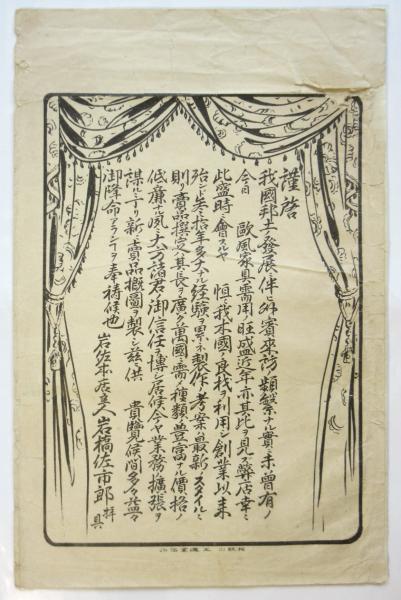 謹啓
我國邦土ノ發展ニ伴ヒ外賓來訪ノ頻繁ナル實ニ未曾有ノ
今日 歐風家具ノ需用旺盛近年亦其比ヲ見ズ弊店幸ニ
此盛時ニ會スルヤ 恒ニ我本國ノ良材ヲ利用シ創業以來
殆ンド参拾年多大ナル経験ヲ累ネ製作ノ考案ハ最新ノスタイルニ
則リ賣品撰定ハ其長ヲ廣ク萬國ニ需メ種類ノ豊富ナル價格ノ
低廉ナル夙ニ大方諸君ノ御信任ヲ博シ居候今ヤ業務ノ擴張ヲ
謀ルニ当リ新ニ賣品概圖ヲ製シ茲ニ供 貴覽候間多々益々
御隆命アランコヲ奉祷候也
岩佐本店主人 岩橋佐市郎 拝具